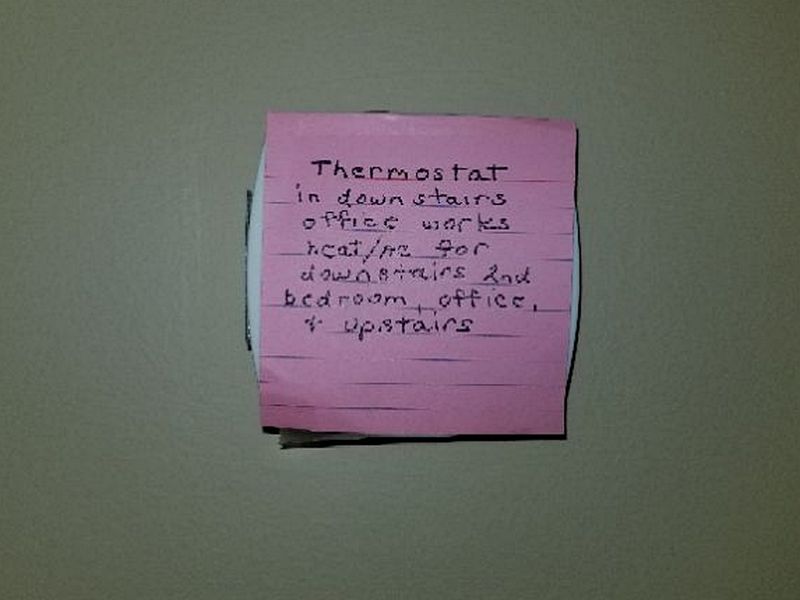 Thermostat
in downstairs
office works
heat/AC for
downstairs 2nd
bedroom, office,
& upstairs